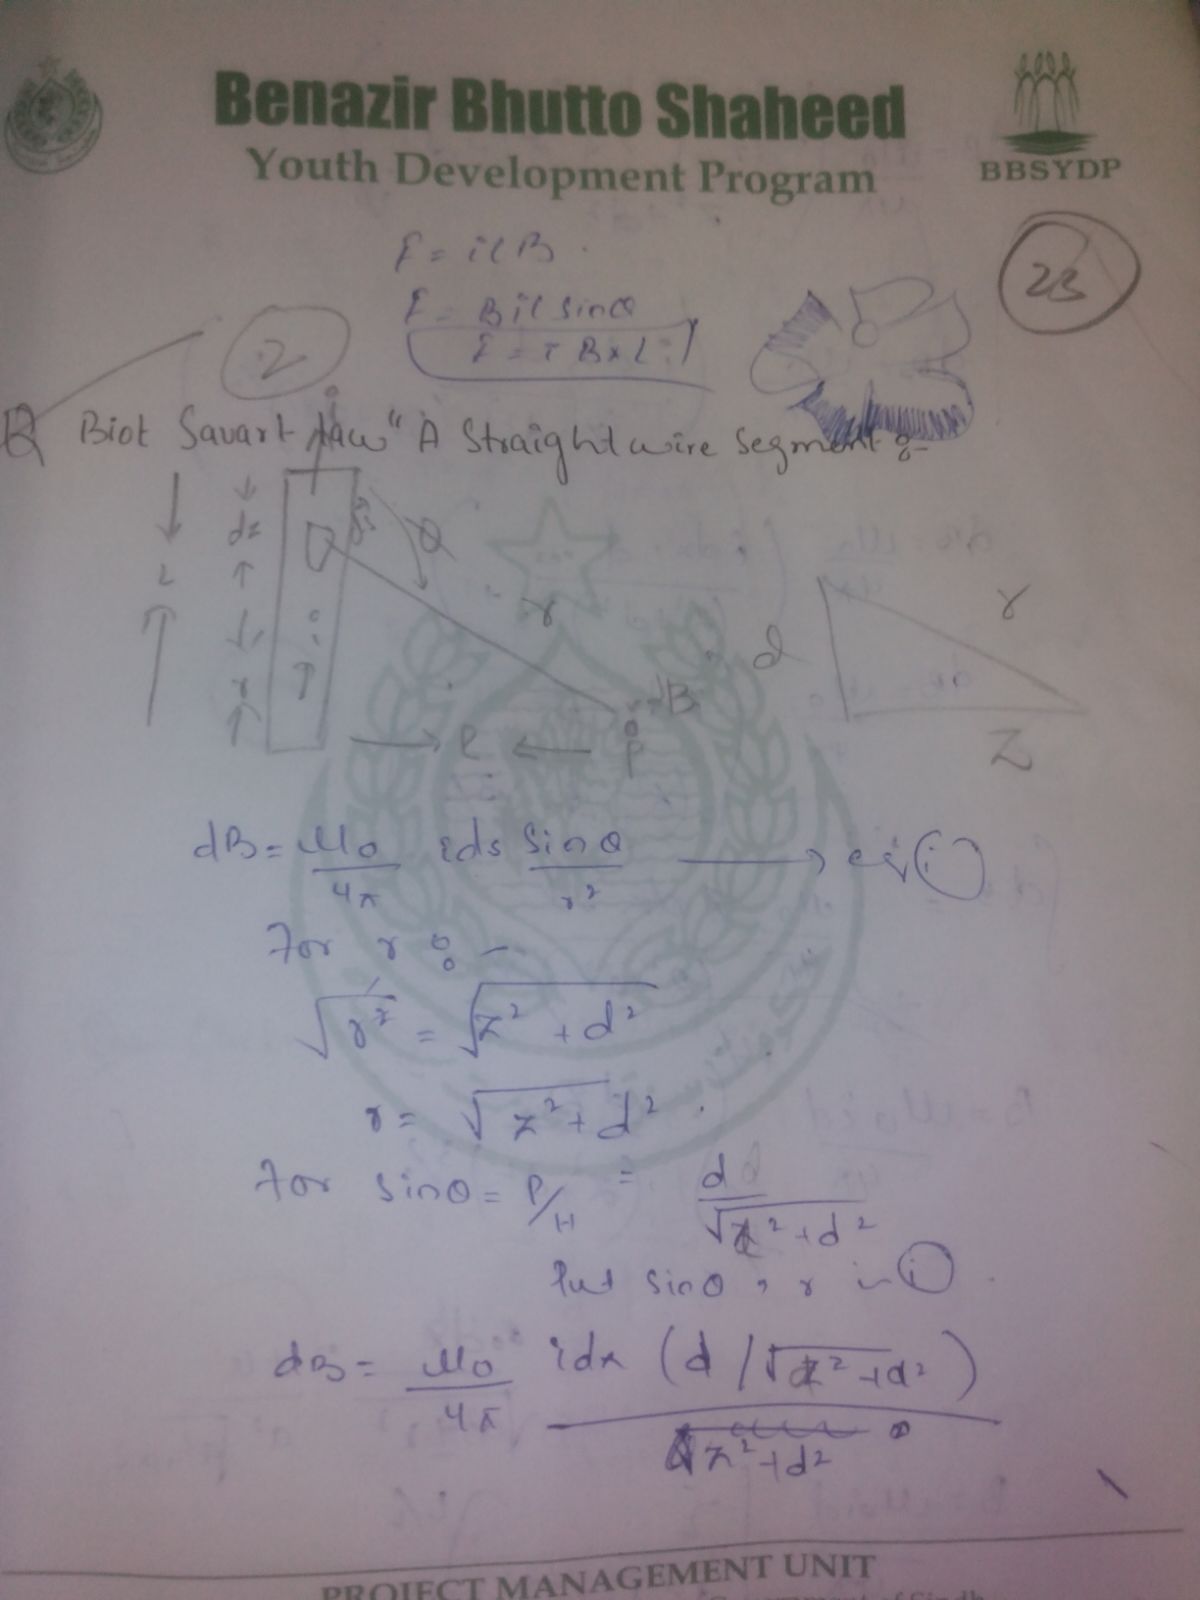 Benazir Bhutto Shaheed
Youth Development Program
BBSYDP
F = ilB
23
F = Bil sinθ
2
F = i B×L
Q Biot Savart law "A Straight wire Segment :-
dz
i
θ
L
r
r
i
d
z
dB
R
P
z
dB = μ0/4π ids sinθ/r² → eq (i)
For r :-
√r² = √z² + d²
r = √z² + d² .
For sinθ = P/H = d/√z² + d²
Put sinθ , r in (i) .
dB = μ0/4π idx (d / √z² + d²)
z² + d²
PROJECT MANAGEMENT UNIT